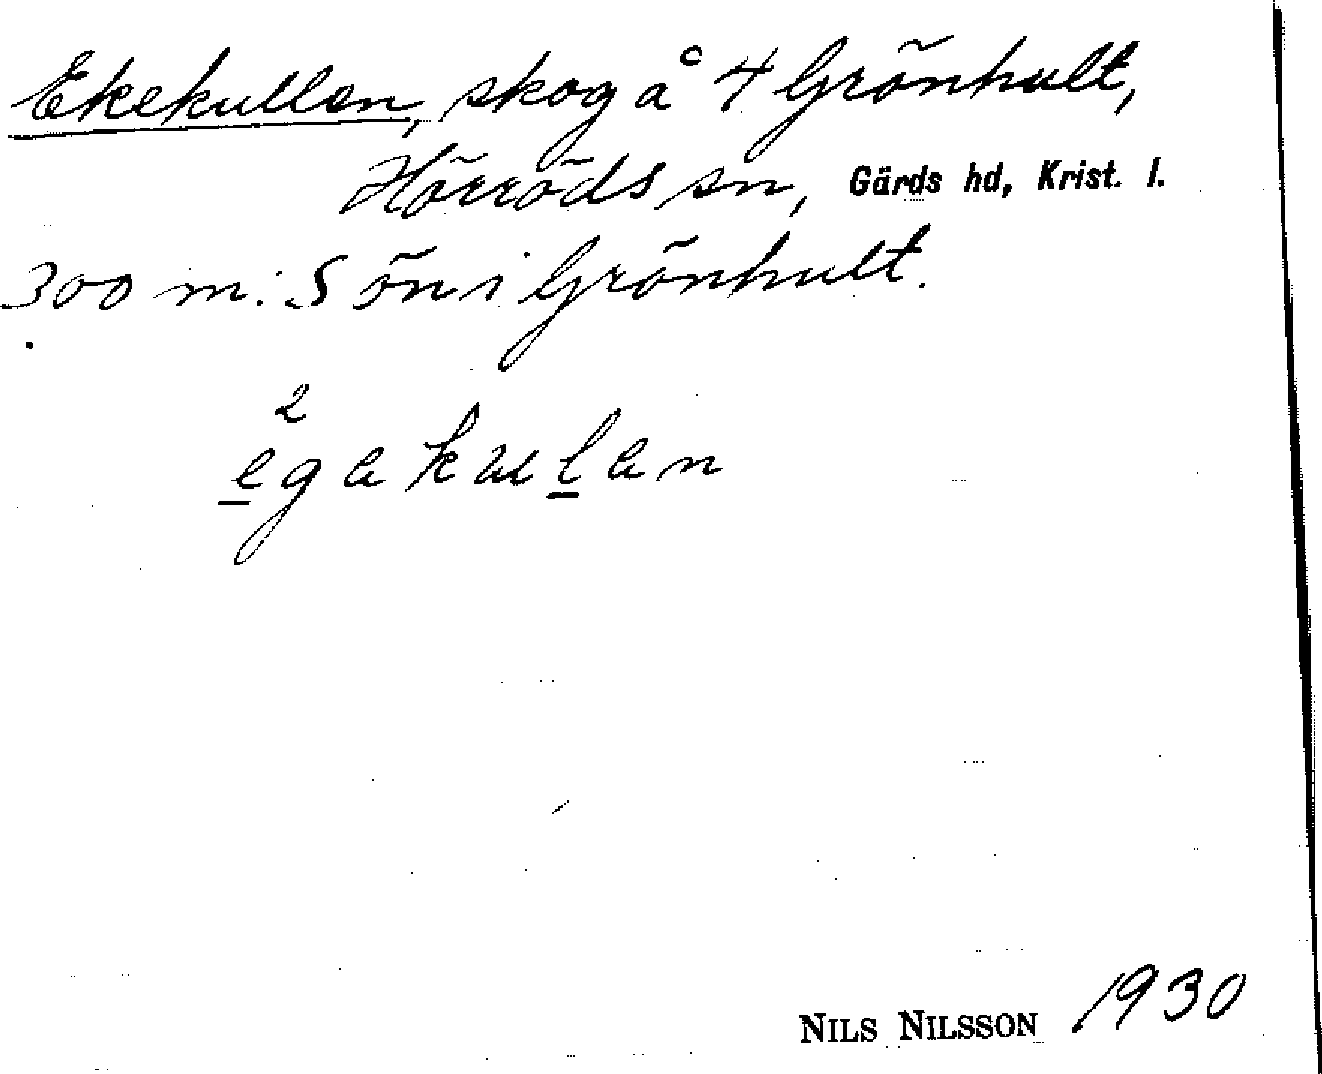 Ekekullen, skog å 4 Grönhult,
Hörröds sn, Gärds hd, Krist. l.
300 m. S ön i Grönhult.
2
egakulan
NILS NILSSON 1930